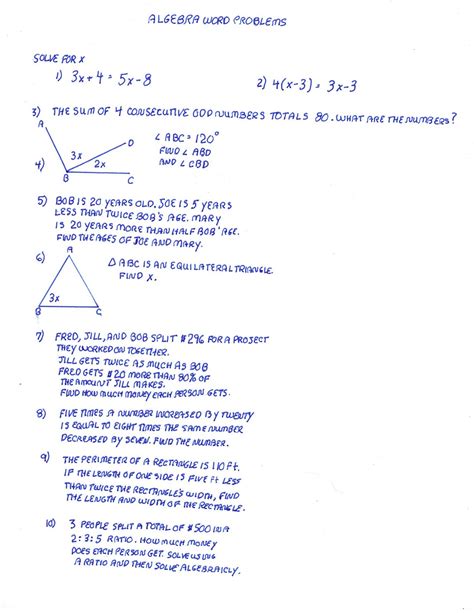 ALGEBRA WORD PROBLEMS
SOLVE FOR X
1) 3x + 4 = 5x - 8
2) 4(x-3) = 3x-3
3) THE SUM OF 4 CONSECUTIVE ODD NUMBERS TOTALS 80. WHAT ARE THE NUMBERS?
4)
A
D
3x
2x
B
C
∠ ABC = 120°
FIND ∠ ABD
AND ∠ CBD
5) BOB IS 20 YEARS OLD. JOE IS 5 YEARS
LESS THAN TWICE BOB'S AGE. MARY
IS 20 YEARS MORE THAN HALF BOB' AGE.
FIND THE AGES OF JOE AND MARY.
6)
A
3x
B
C
△ ABC IS AN EQUILATERAL TRIANGLE.
FIND X.
7) FRED, JILL, AND BOB SPLIT $296 FOR A PROJECT
THEY WORKED ON TOGETHER.
JILL GETS TWICE AS MUCH AS BOB
FRED GETS $20 MORE THAN 80% OF
THE AMOUNT JILL MAKES.
FIND HOW MUCH MONEY EACH PERSON GETS.
8) FIVE TIMES A NUMBER INCREASED BY TWENTY
IS EQUAL TO EIGHT TIMES THE SAME NUMBER
DECREASED BY SEVEN. FIND THE NUMBER.
9) THE PERIMETER OF A RECTANGLE IS 110 FT.
IF THE LENGTH OF ONE SIDE IS FIVE FT LESS
THAN TWICE THE RECTANGLE'S WIDTH, FIND
THE LENGTH AND WIDTH OF THE RECTANGLE.
10) 3 PEOPLE SPLIT A TOTAL OF $500 IN A
2:3:5 RATIO. HOW MUCH MONEY
DOES EACH PERSON GET. SOLVE USING
A RATIO AND THEN SOLVE ALGEBRAICLY.